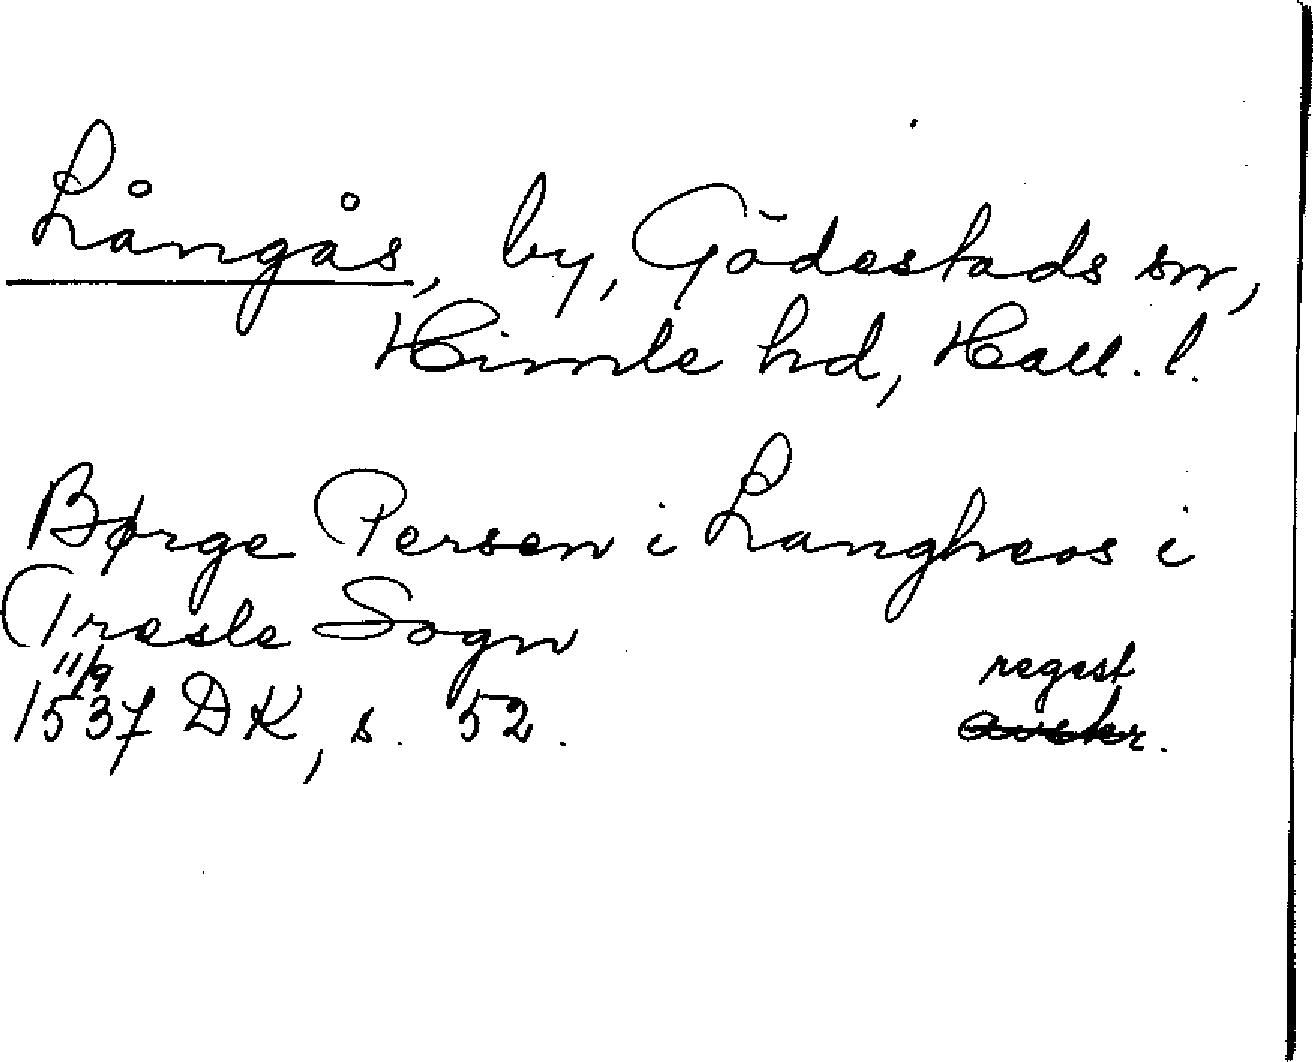 Långås, by, Gödestads sn,
Himle hd, Hall. l.
Børge Persen i Langheos i
Træsle Sogn
11/9
1537 DK, s. 52.
regest
avskr.